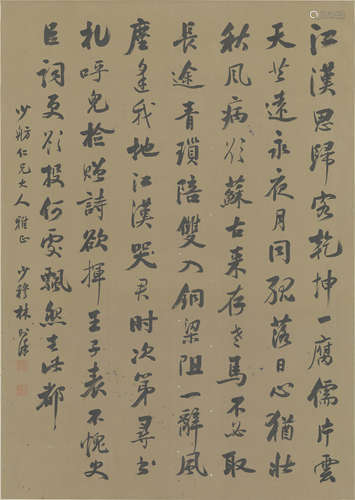 江漢思歸客乾坤一腐儒片雲
天共遠永夜月同孤落日心猶壯
秋風病欲蘇古來存老馬不必取
長途青瑣陪雙入銅梁阻一辭風
塵逢我地江漢哭君時次第尋書
札呼兒檢贈詩欲揮王子表不愧史
臣詞更欲投何處飄然去此都
少舫仁兄大人雅正 少穆林則徐